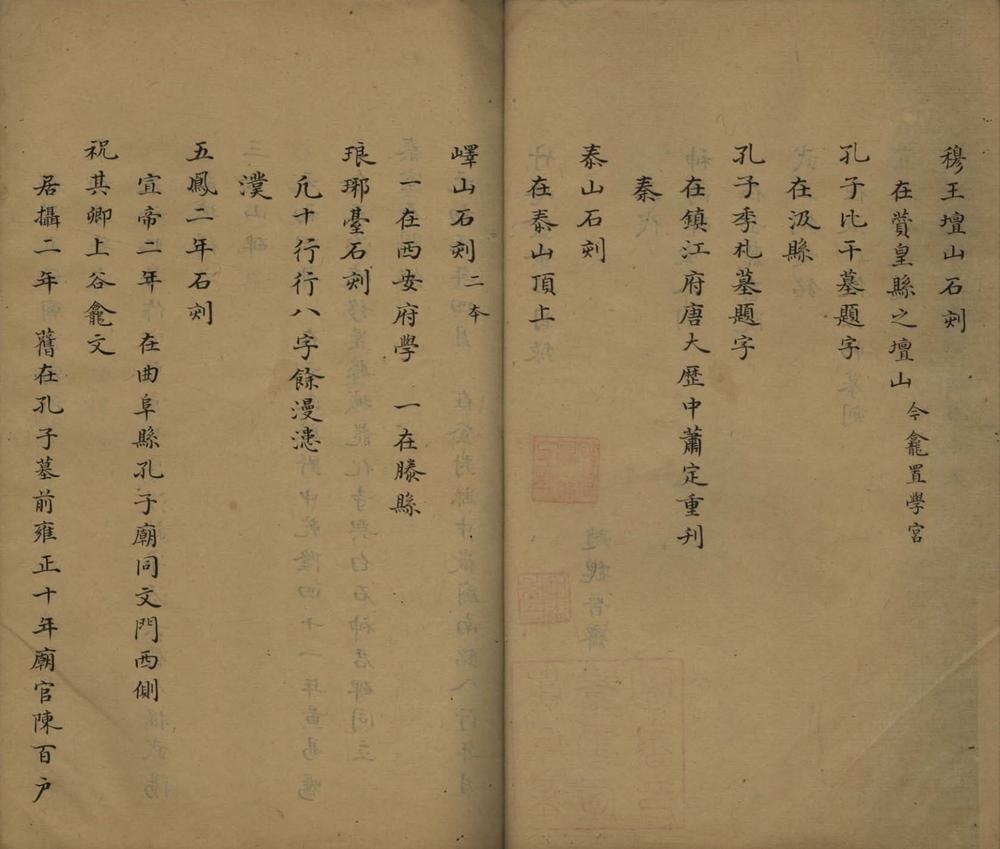 穆王壇山石刻
在賛皇縣之壇山 今龕置學宮
孔子比干墓題字
在汲縣
孔子季札墓題字
在鎮江府唐大歷中蕭定重刋
秦
泰山石刻
在泰山頂上
嶧山石刻二本
一在西安府學 一在滕縣
琅琊臺石刻
凡十行行八字餘漫漶
漢
五鳳二年石刻
宣帝二年 在曲阜縣孔子廟同文門西側
祝其卿上谷龕文
居攝二年 舊在孔子墓前雍正十年廟官陳百户